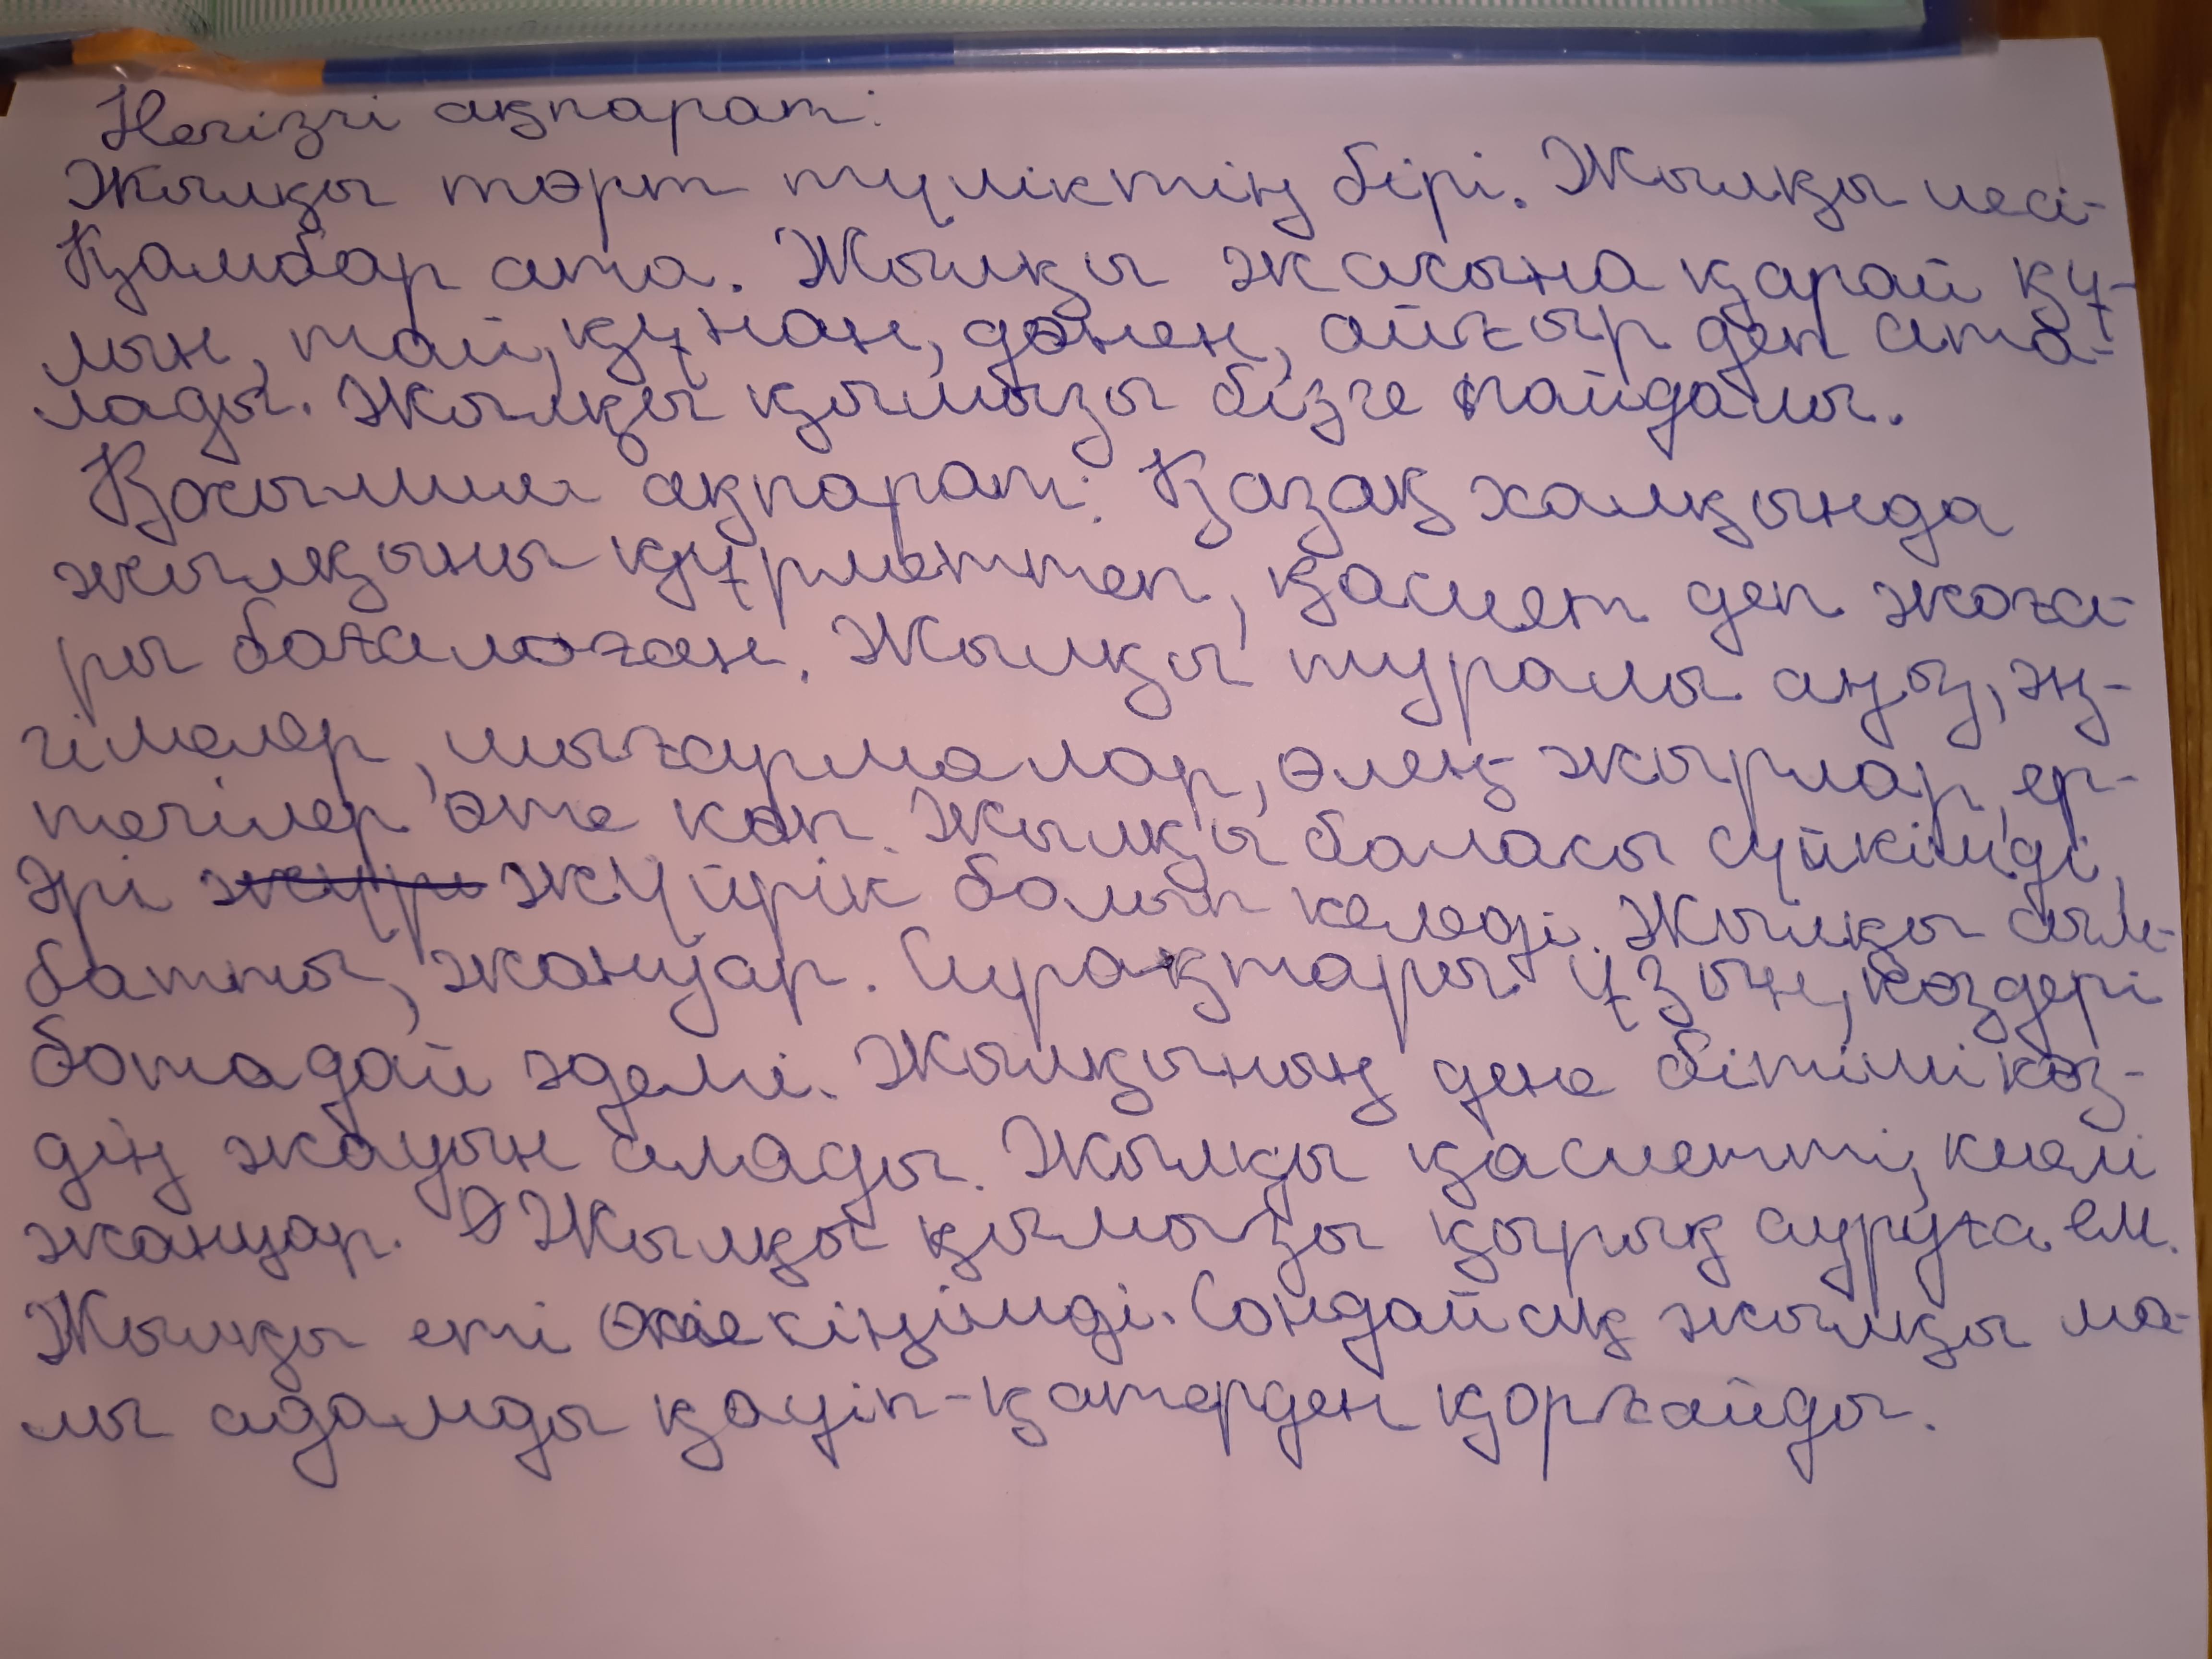 Негізгі ақпарат:
Жылқы төрт түліктің бірі. Жылқы иесі-
Қамбар ата. Жылқы жасына қарай құ-
лын, тай, құнан, дөнен, айғыр деп ата-
лады. Жылқы қымызы бізге пайдалы.
Қосымша ақпарат: Қазақ халқында
жылқыны құрметтеп, қасиет деп жоға-
ры бағалаған. Жылқы туралы аңыз, әң-
гімелер, шығармалар, өлең-жырлар, ер-
тегілер өте көп. Жылқы баласы сүйкімді,
әрі жүйрік болып келеді. Жылқы сым-
батты, жануар. Сирақтары ұзын, көздері
ботадай әдемі. Жылқының дене бітімі көз-
дің жауын алады. Жылқы қасиетті, киелі
жануар. Жылқы қымызы қырық ауруға ем.
Жылқы еті өте сіңімді. Сондай ақ жылқы ма-
лы адамды қауіп-қатерден қорғайды.